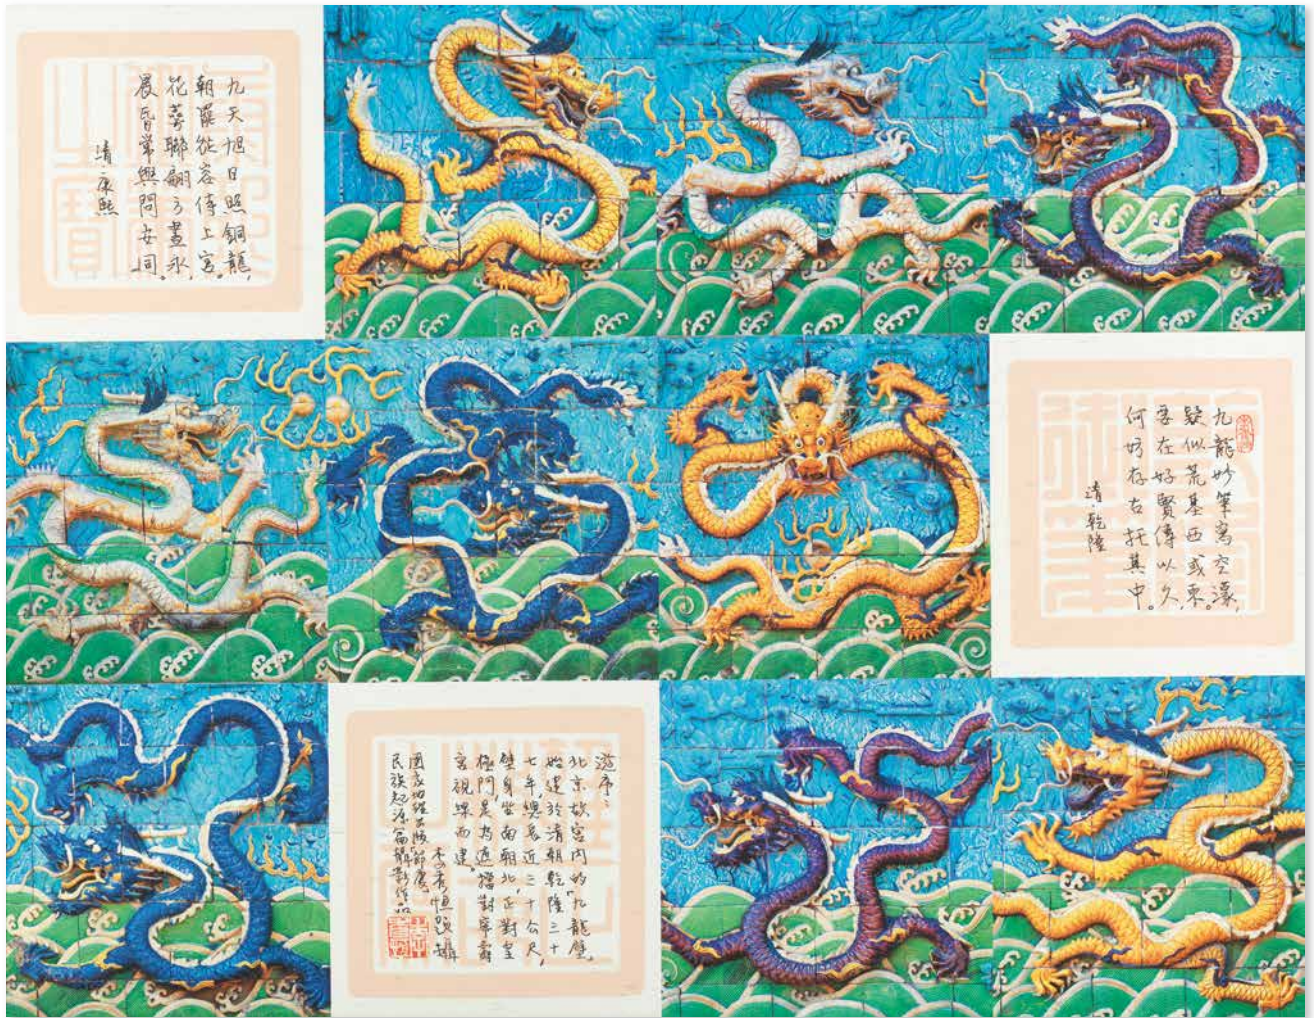 九天旭日照銅龍，
朝罷從容侍上宮。
花萼聯翩方晝永，
晨昏常與問安同。
清·康熙
九龍妙筆寫空濛，
疑似荒基西或東。
要在好賢傳以久，
何妨存古托其中。
清·乾隆
北京故宮內的“九龍壁”
始建於清朝乾隆三十
七年，總長近三十公尺，
壁身坐南朝北，正對皇
極門，是為遮擋對寧壽
宮視線而建。
李秀恒
國家地理出版
民族起源